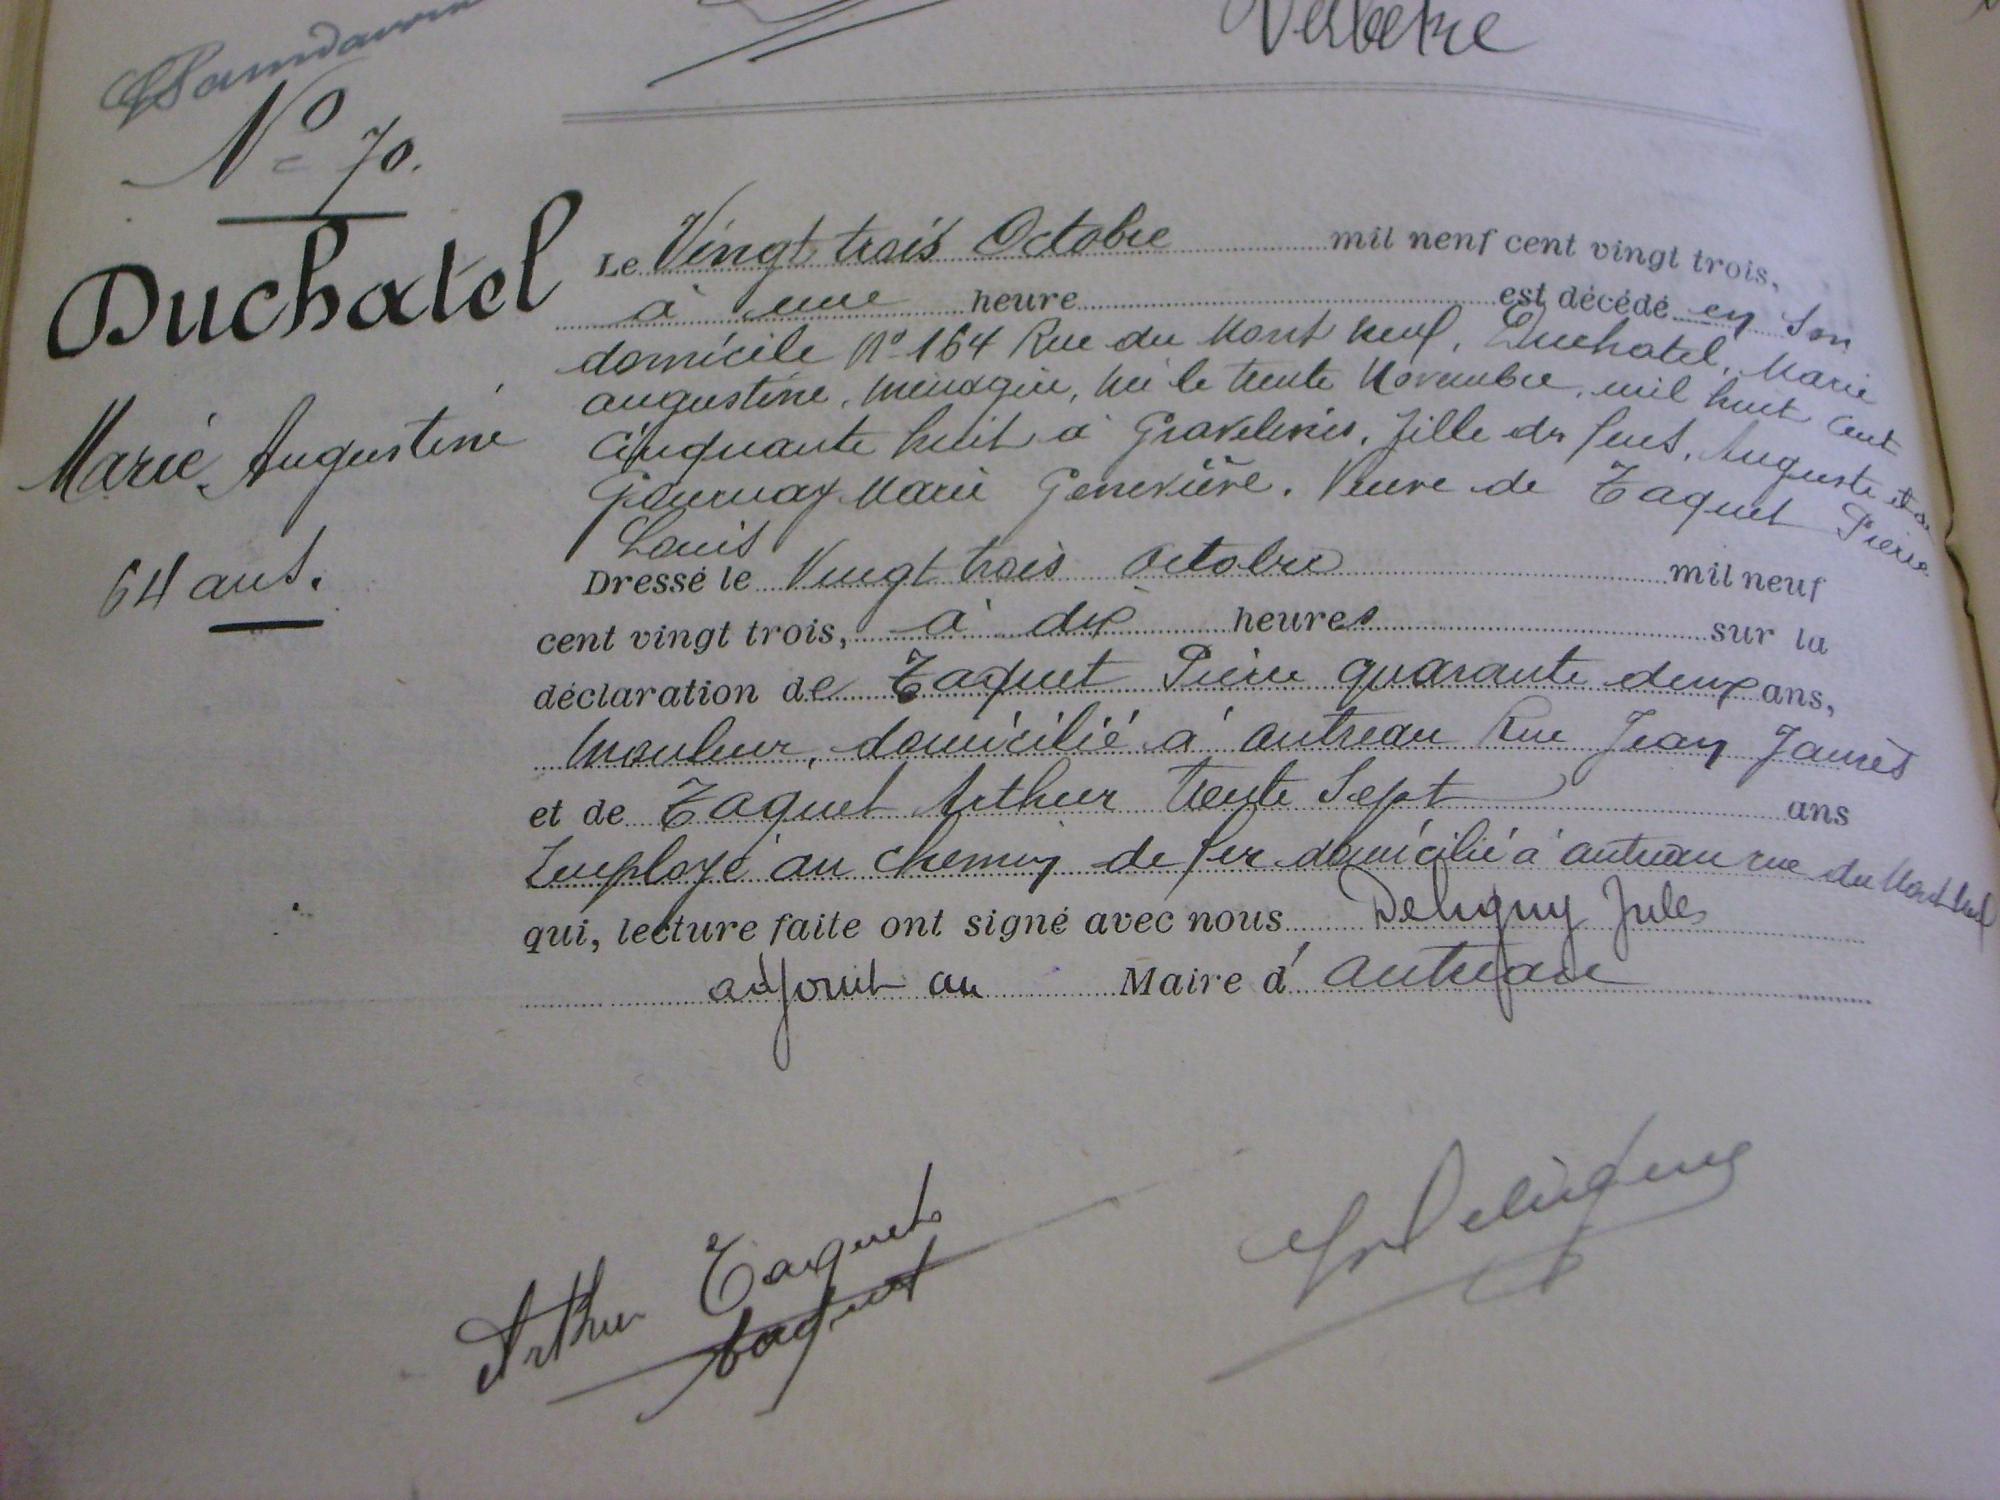 Verbeke
No 70.
Duchatel
Marie Augustine
64 ans.
Le Vingt trois Octobre mil neuf cent vingt trois,
à une heure est décédé en son
domicile No 164 Rue du Mont neuf, Duchatel, Marie
augustine, ménagère, née le trente Novembre, mil huit cent
cinquante huit à Gravelines, fille des feus, Auguste et de
Gournay Marie Geneviève. Veuve de Taquet Pierre
Louis
Dressé le Vingt trois octobre mil neuf
cent vingt trois, à dix heures sur la
déclaration de Taquet Pierre quarante deux ans,
Mouleur, domicilié à outreau Rue Jean Jaurès
et de Taquet Arthur trente sept ans
Employé au chemin de fer domicilié à outreau rue du Mont Neuf
qui, lecture faite ont signé avec nous Deligny Jules
adjoint au Maire d'outreau
Arthur Taquet
Taquet
Deligny